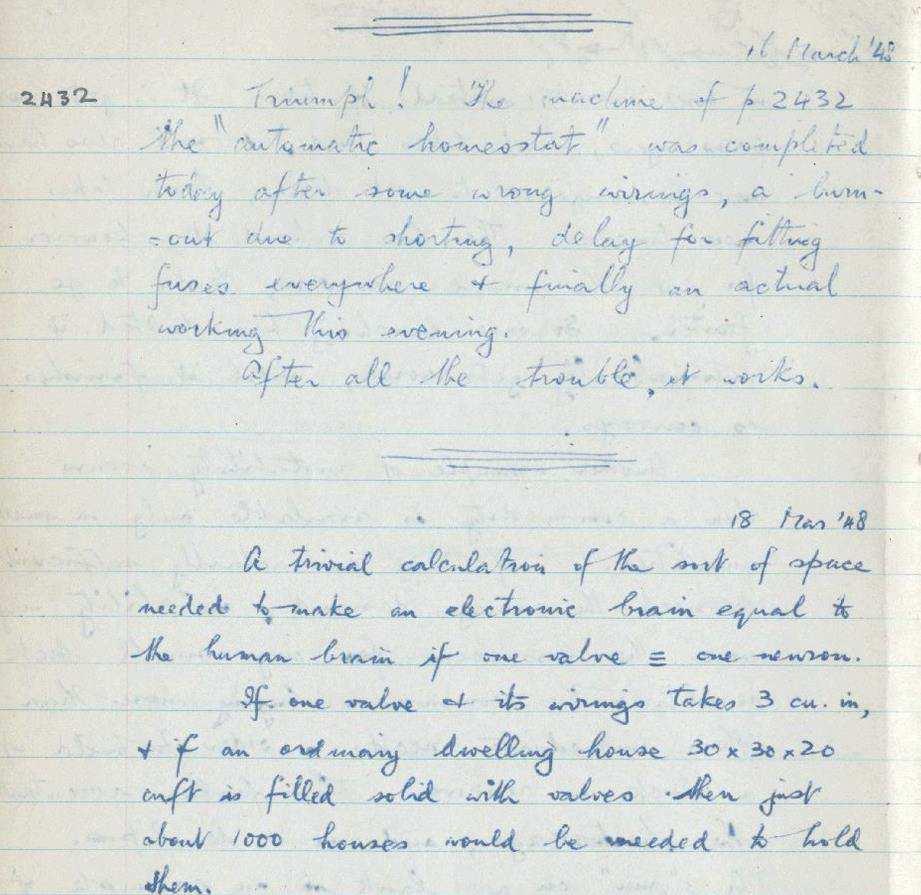 16 March '48
2432 Triumph! The machine of p 2432
the "automatic homeostat" was completed
today after some wrong wirings, a burn-
-out due to shorting, delay for fitting
fuses everywhere & finally an actual
working this evening.
After all the trouble, it works.
18 Mar '48
A trivial calculation of the sort of space
needed to make an electronic brain equal to
the human brain if one valve ≡ one neuron.
If one valve & its wirings takes 3 cu. in,
& if an ordinary dwelling house 30 x 30 x 20
cuft is filled solid with valves then just
about 1000 houses would be needed to hold
them.